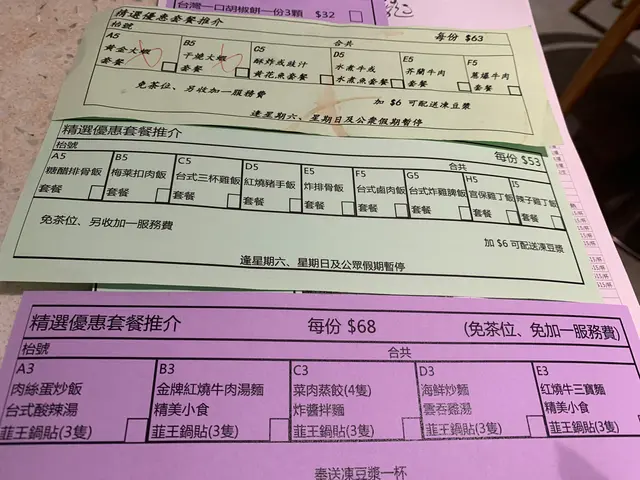 台灣一口胡椒餅一份3顆 $32
精選優惠套餐推介 每份 $63
枱號 合共
A5 B5 C5 D5 E5 F5
黃金大蝦 干燒大蝦 酥炸或豉汁 水煮牛或 芥蘭牛肉 蔥爆牛肉
套餐 套餐 黃花魚套餐 水煮魚套餐 套餐 套餐
免茶位、另收加一服務費 加 $6 可配送凍豆漿
逢星期六、星期日及公眾假期暫停
精選優惠套餐推介 每份 $53
枱號 合共
A5 B5 C5 D5 E5 F5 G5 H5 I5
糖醋排骨飯 梅菜扣肉飯 台式三杯雞飯 紅燒豬手飯 炸排骨飯 台式鹵肉飯 台式炸雞脾飯 宮保雞丁飯 辣子雞丁飯
套餐 套餐 套餐 套餐 套餐 套餐 套餐 套餐 套餐
免茶位、另收加一服務費 加 $6 可配送凍豆漿
逢星期六、星期日及公眾假期暫停
精選優惠套餐推介 每份 $68 (免茶位、免加一服務費)
枱號 合共
A3 B3 C3 D3 E3
肉絲蛋炒飯 金牌紅燒牛肉湯麵 菜肉蒸餃(4隻) 海鮮炒麵 紅燒牛三寶麵
台式酸辣湯 精美小食 炸醬拌麵 雲吞雞湯 精美小食
韮王鍋貼(3隻) 韮王鍋貼(3隻) 韮王鍋貼(3隻) 韮王鍋貼(3隻) 韮王鍋貼(3隻)
奉送凍豆漿一杯